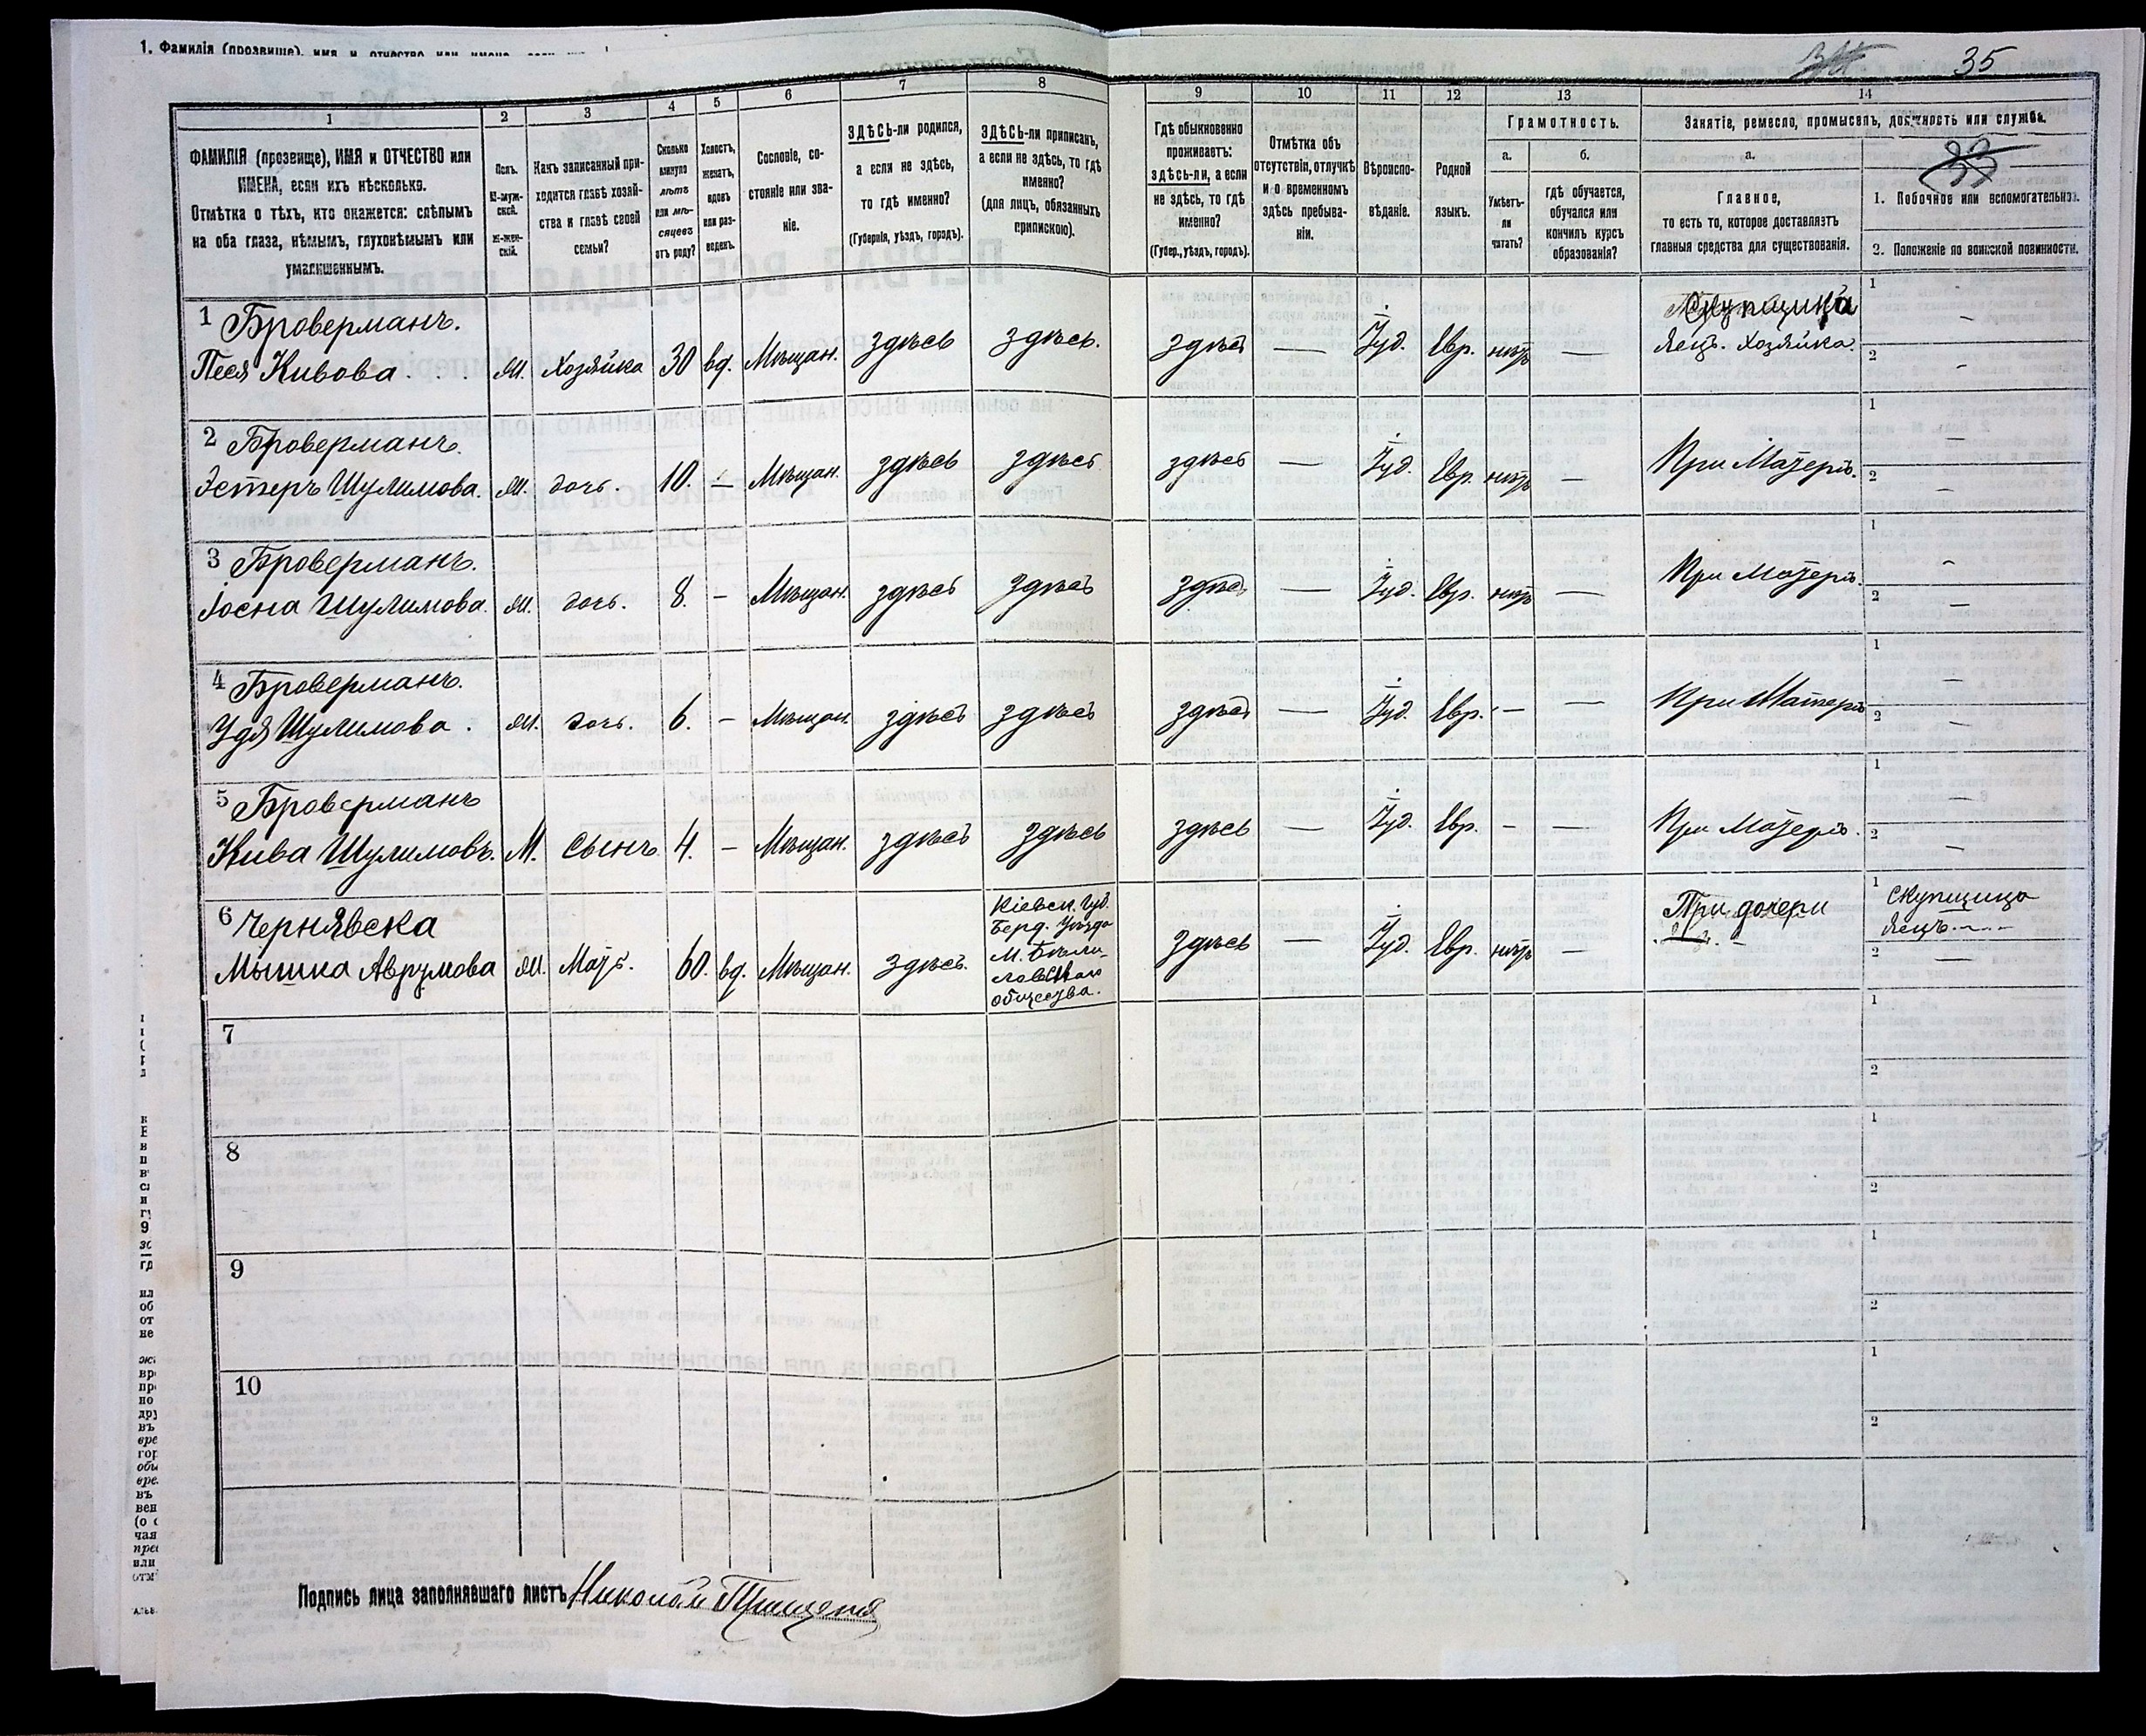 1. Фамилія (прозвище), имя и отчество или имена, если
35
33
1
2
3
4
5
6
7
8
9
10
11
12
13
14
ФАМИЛІЯ (прозвище), ИМЯ и ОТЧЕСТВО или
ИМЕНА, если ихъ нѣсколько.
Отмѣтка о тѣхъ, кто окажется: слѣпымъ
на оба глаза, нѣмымъ, глухонѣмымъ или
умалишеннымъ.
Полъ.
М-муж-
ской.
Ж-жен-
скій.
Какъ записанный при-
ходится главѣ хозяй-
ства и главѣ своей
семьи?
Сколько
минуло
лѣтъ
или мѣ-
сяцевъ
отъ роду?
Холостъ,
женатъ,
вдовъ
или раз-
веденъ.
Сословіе, со-
стояніе или зва-
ніе.
ЗДѢСЬ-ли родился,
а если не здѣсь,
то гдѣ именно?
(Губернія, уѣздъ, городъ).
ЗДѢСЬ-ли приписанъ,
а если не здѣсь, то гдѣ
именно?
(для лицъ, обязанныхъ
припискою).
Гдѣ обыкновенно
проживаетъ:
здѣсь-ли, а если
не здѣсь, то гдѣ
именно?
(Губер., уѣздъ, городъ).
Отмѣтка объ
отсутствіи, отлучкѣ
и о временномъ
здѣсь пребыва-
ніи.
Вѣроиспо-
вѣданіе.
Родной
языкъ.
Грамотность.
а.
Умѣетъ-
ли
читать?
б.
гдѣ обучается,
обучался или
кончилъ курсъ
образованія?
Занятіе, ремесло, промыселъ, должность или служба.
а.
Главное,
то есть то, которое доставляетъ
главныя средства для существованія.
1. Побочное или вспомогательное.
2. Положеніе по воинской повинности.
1 Броверманъ.
Песя Кивова. Хозяйка 30 вд. Мѣщан. здѣсь здѣсь. здѣсь — Іуд. Евр. нѣтъ —
Скупщица
Яецъ. Хозяйка.
1 —
2 —
2 Броверманъ.
Эстеръ Шулимова. дочь. 10. — Мѣщан. здѣсь здѣсь здѣсь — Іуд. Евр. нѣтъ — При Матери.
1 —
2 —
3 Броверманъ.
Шулимова. дочь. 8. — Мѣщан. здѣсь здѣсь здѣсь — Іуд. Евр. нѣтъ — При Матери.
1 —
2 —
4 Броверманъ.
Удя Шулимова. дочь. 6. — Мѣщан. здѣсь здѣсь здѣсь — Іуд. Евр. — — При Матери
1 —
2 —
5 Броверманъ
Кива Шулимовъ. М. Сынъ 4. — Мѣщан. здѣсь здѣсь здѣсь — Іуд. Евр. — — При Матери.
1 —
2 —
6 Чернявска
Мышка Аврумова Мать. 60. вд. Мѣщан. здѣсь.
Кіевск. Губ.
Берд. Уѣзда
М. Бѣли-
ловскаго
общества.
здѣсь — Іуд. Евр. нѣтъ — При дочери
1 Скупщица
Яецъ
2 —
7
1
2
8
1
2
9
1
2
10
1
2
Подпись лица заполнявшаго листъ Николай